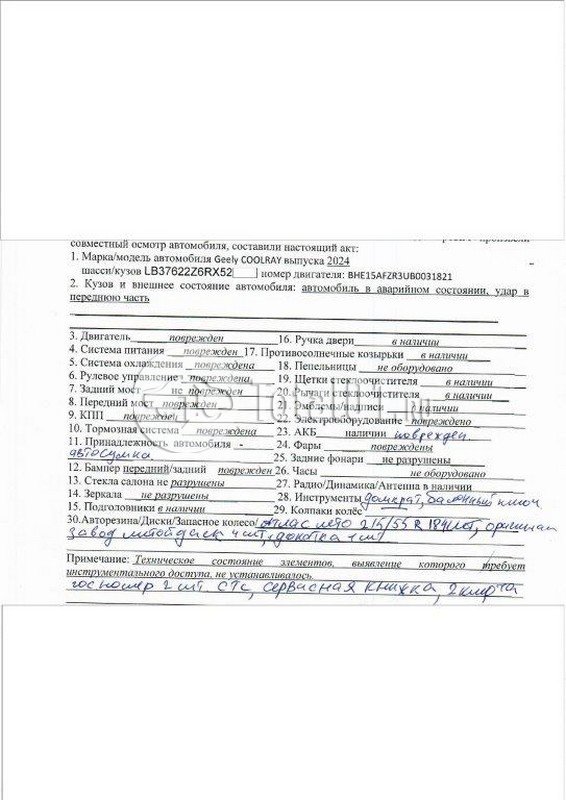 совместный осмотр автомобиля, составили настоящий акт:
1. Марка/модель автомобиля Geely COOLRAY выпуска 2024
шасси/кузов LB37622Z6RX52[ ] номер двигателя: BHE15AFZR3UB0031821
2. Кузов и внешнее состояние автомобиля: автомобиль в аварийном состоянии, удар в
переднюю часть
3. Двигатель поврежден 16. Ручка двери в наличии
4. Система питания поврежден 17. Противосолнечные козырьки в наличии
5. Система охлаждения повреждена 18. Пепельницы не оборудовано
6. Рулевое управление повреждена 19. Щетки стеклоочистителя в наличии
7. Задний мост не поврежден 20. Рычаги стеклоочистителя в наличии
8. Передний мост поврежден 21. Эмблемы/надписи в наличии
9. КПП поврежден 22. Электрооборудование повреждено
10. Тормозная система повреждена 23. АКБ наличии поврежден
11. Принадлежность автомобиля - 24. Фары повреждены
автосумка 25. Задние фонари не разрушены
12. Бампер передний/задний поврежден 26. Часы не оборудовано
13. Стекла салона не разрушены 27. Радио/Динамика/Антенна в наличии
14. Зеркала не разрушены 28. Инструменты домкрат, балонный ключ
15. Подголовники в наличии 29. Колпаки колёс
30.Авторезина/Диски/Запасное колесо/ атлас лето 215/55 R 18 4шт, оригинал
завод литой диск 4 шт, докатка 1 шт
Примечание: Техническое состояние элементов, выявление которого требует
инструментального доступа, не устанавливалось.
гос номер 2 шт. СТС, сервисная книжка, 2 ключа